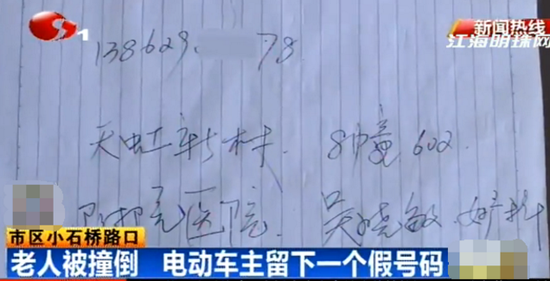 1
新闻热线
江海明珠网
138629 78
天虹新村 8幢602
附院医院 吴晓敏 妇产科
市区小石桥路口
老人被撞倒 电动车主留下一个假号码